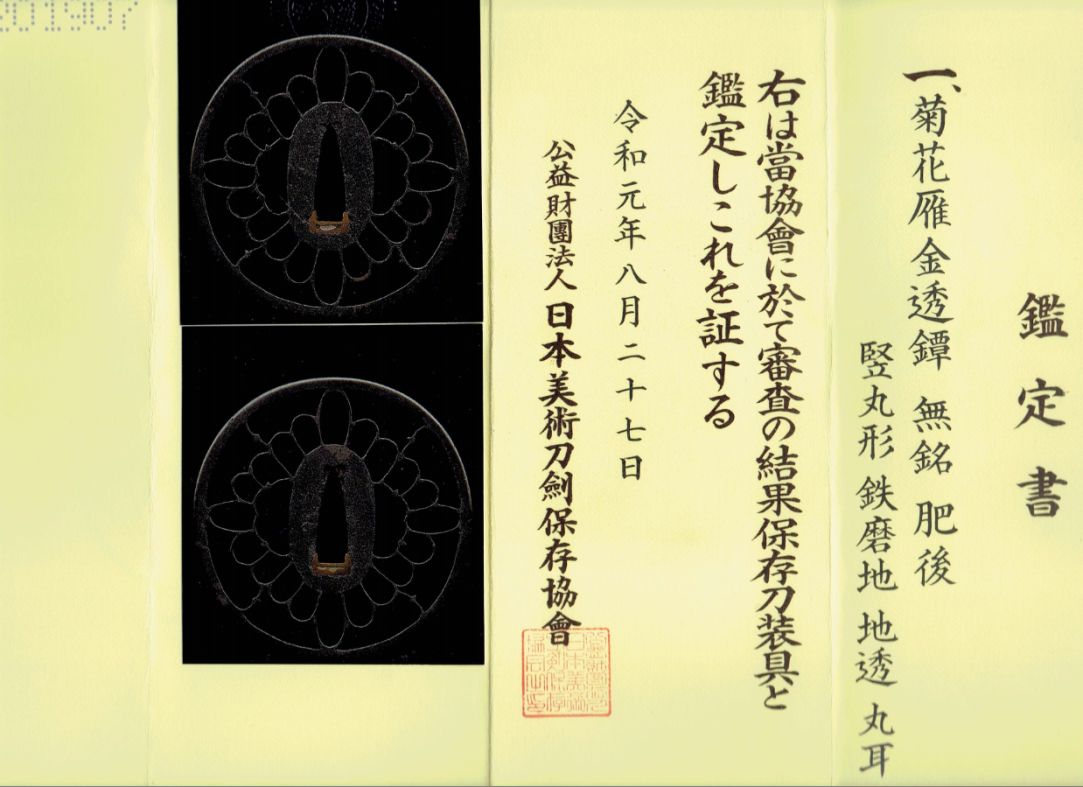 鑑定書
一、菊花雁金透鐔 無銘 肥後
竪丸形 鉄磨地 地透 丸耳
右は當協會に於て審査の結果保存刀装具と
鑑定しこれを証する
令和元年八月二十七日
公益財團法人 日本美術刀劍保存協會
201907